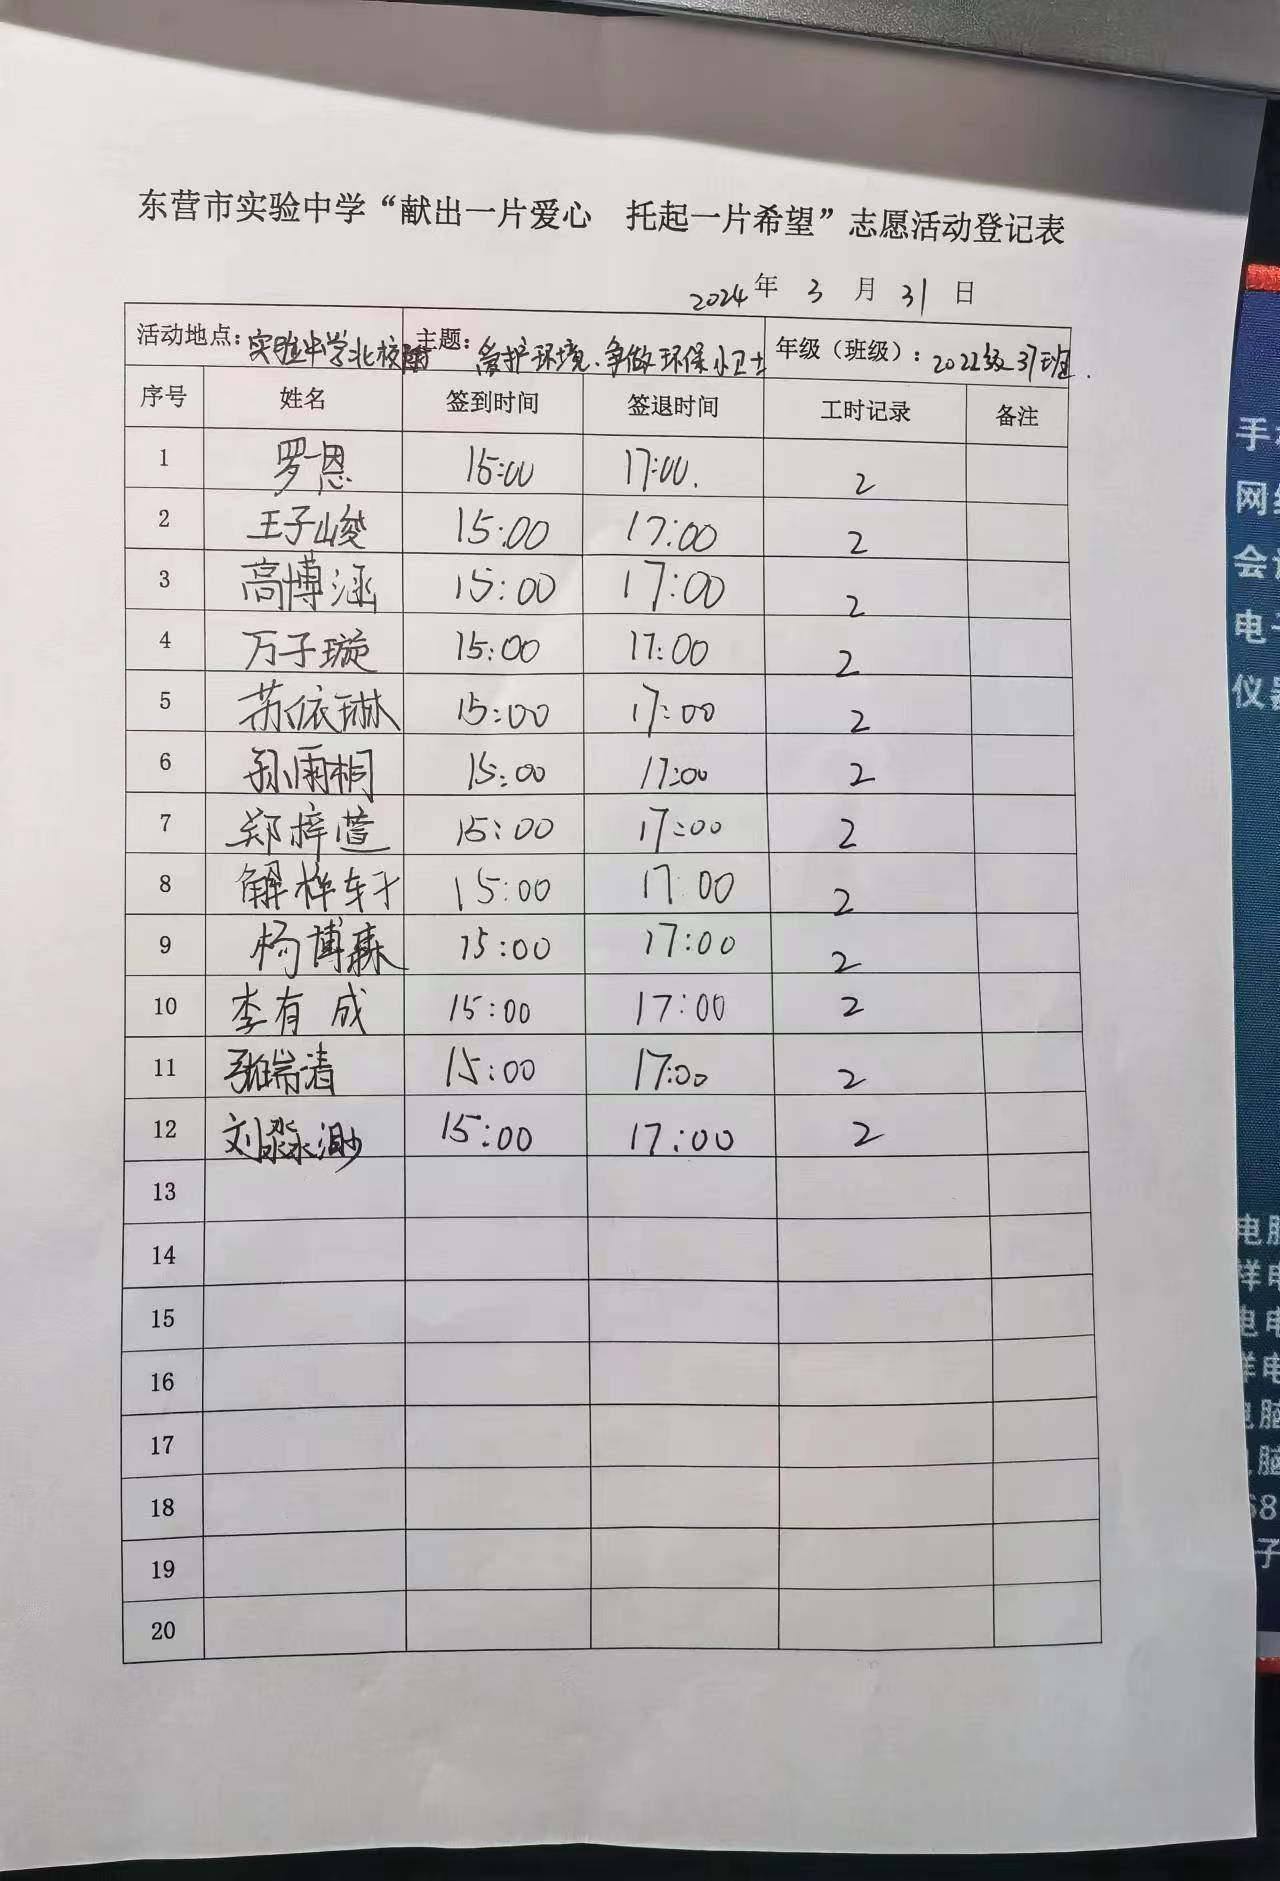 东营市实验中学“献出一片爱心 托起一片希望”志愿活动登记表
2024年 3 月 31 日
活动地点：实验中学北校 主题：爱护环境、争做环保小卫士 年级（班级）：2022级37班.
序号 姓名 签到时间 签退时间 工时记录 备注
1 罗恩 15:00 17:00. 2
2 王子峻 15:00 17:00 2
3 高博涵 15:00 17:00 2
4 万子璇 15:00 17:00 2
5 苏依琳 15:00 17:00 2
6 孙雨桐 15:00 17:00 2
7 郑梓萱 15:00 17:00 2
8 解桦轩 15:00 17:00 2
9 杨博森 15:00 17:00 2
10 李有成 15:00 17:00 2
11 张瑞清 15:00 17:00 2
12 刘淼渺 15:00 17:00 2
13
14
15
16
17
18
19
20
手
网
会
电
仪
电
祥电
电
电
脑
脑
68
子